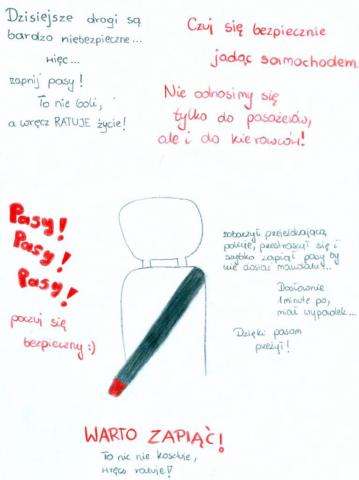 Dzisiejsze drogi są
bardzo niebezpieczne...
więc...
zapnij pasy!
To nie boli,
a wręcz RATUJE życie!
Czuj się bezpiecznie
jadąc samochodem.
Nie odnosimy się
tylko do pasażerów,
ale i do kierowców!
Pasy!
Pasy!
Pasy!
poczuj się
bezpieczny :)
zobaczył przejeżdżającą
policję, przestraszył się i
szybko zapiął pasy by
nie dostać mandatu...
Dosłownie
1 minutę po,
miał wypadek...
Dzięki pasom
przeżył!
WARTO ZAPIĄĆ!
To nic nie kosztuje,
wręcz ratuje!